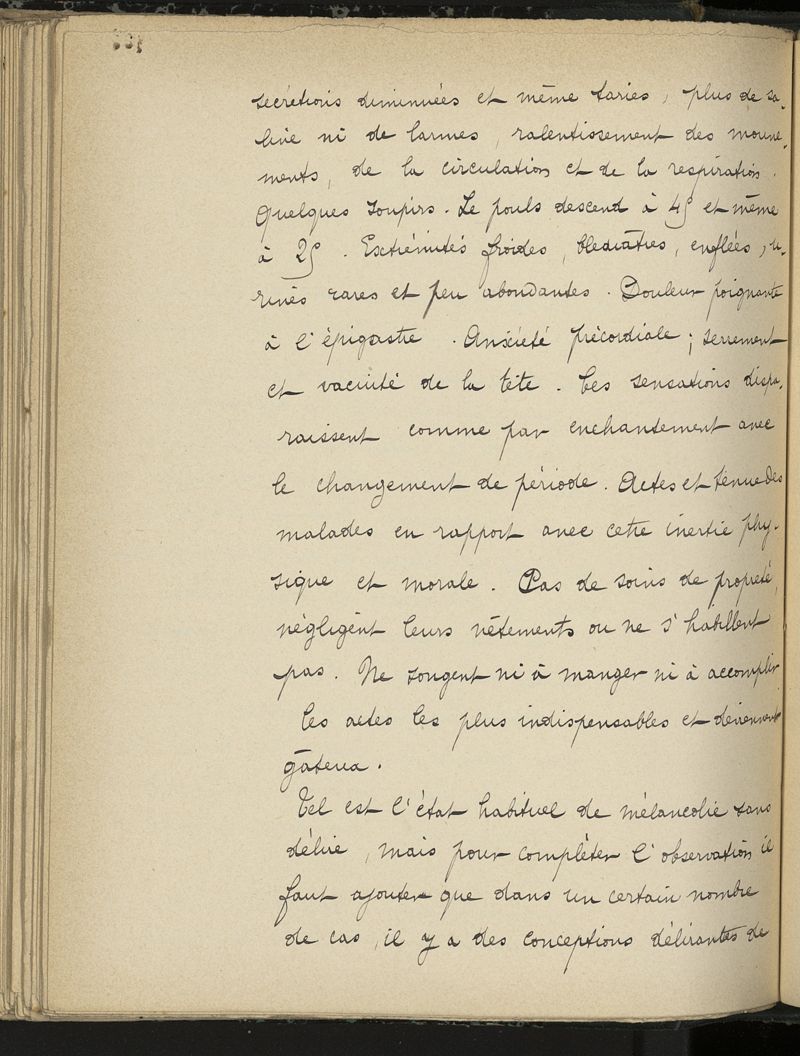 secrétions diminuées et même taries, plus de sa-
live ni de larmes, ralentissement des mouve-
ments, de la circulation et de la respiration.
Quelques soupirs. Le pouls descend à 45 et même
à 25. Extrémités froides, bleuâtres, enflées, u-
rines rares et peu abondantes. Douleur poignante
à l'épigastre. Anxiété précordiale; serrement
et vacuité de la tête. Ces sensations dispa-
raissent comme par enchantement avec
le changement de période. Actes et tenue des
malades en rapport avec cette inertie phy-
sique et morale. Pas de soins de propreté,
négligent leurs vêtements ou ne s'habillent
pas. Ne songent ni à manger ni à accomplir
les actes les plus indispensables et deviennent
gâteux.
Tel est l'état habituel de mélancolie sans
délire, mais pour compléter l'observation il
faut ajouter que dans un certain nombre
de cas, il y a des conceptions délirantes de